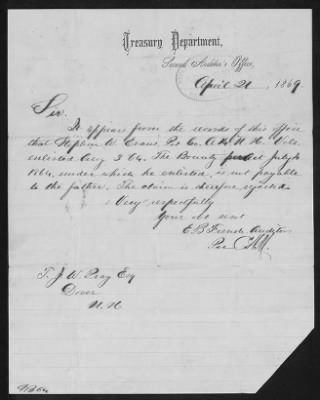 Treasury Department,
Second Auditor's Office,
April 21, 1869
Sir.
It appears from the records of this office
that Stephen W. Evans, Co. N. H. Vols.
enlisted Aug 3 64. The Bounty act July 4
1864, under which he enlisted, is not payable
to the father. The claim is therefore rejected
Very respectfully
Your obt servt
E B French Auditor
Per
T. J. W. Pray Esq
Dover
N. H.